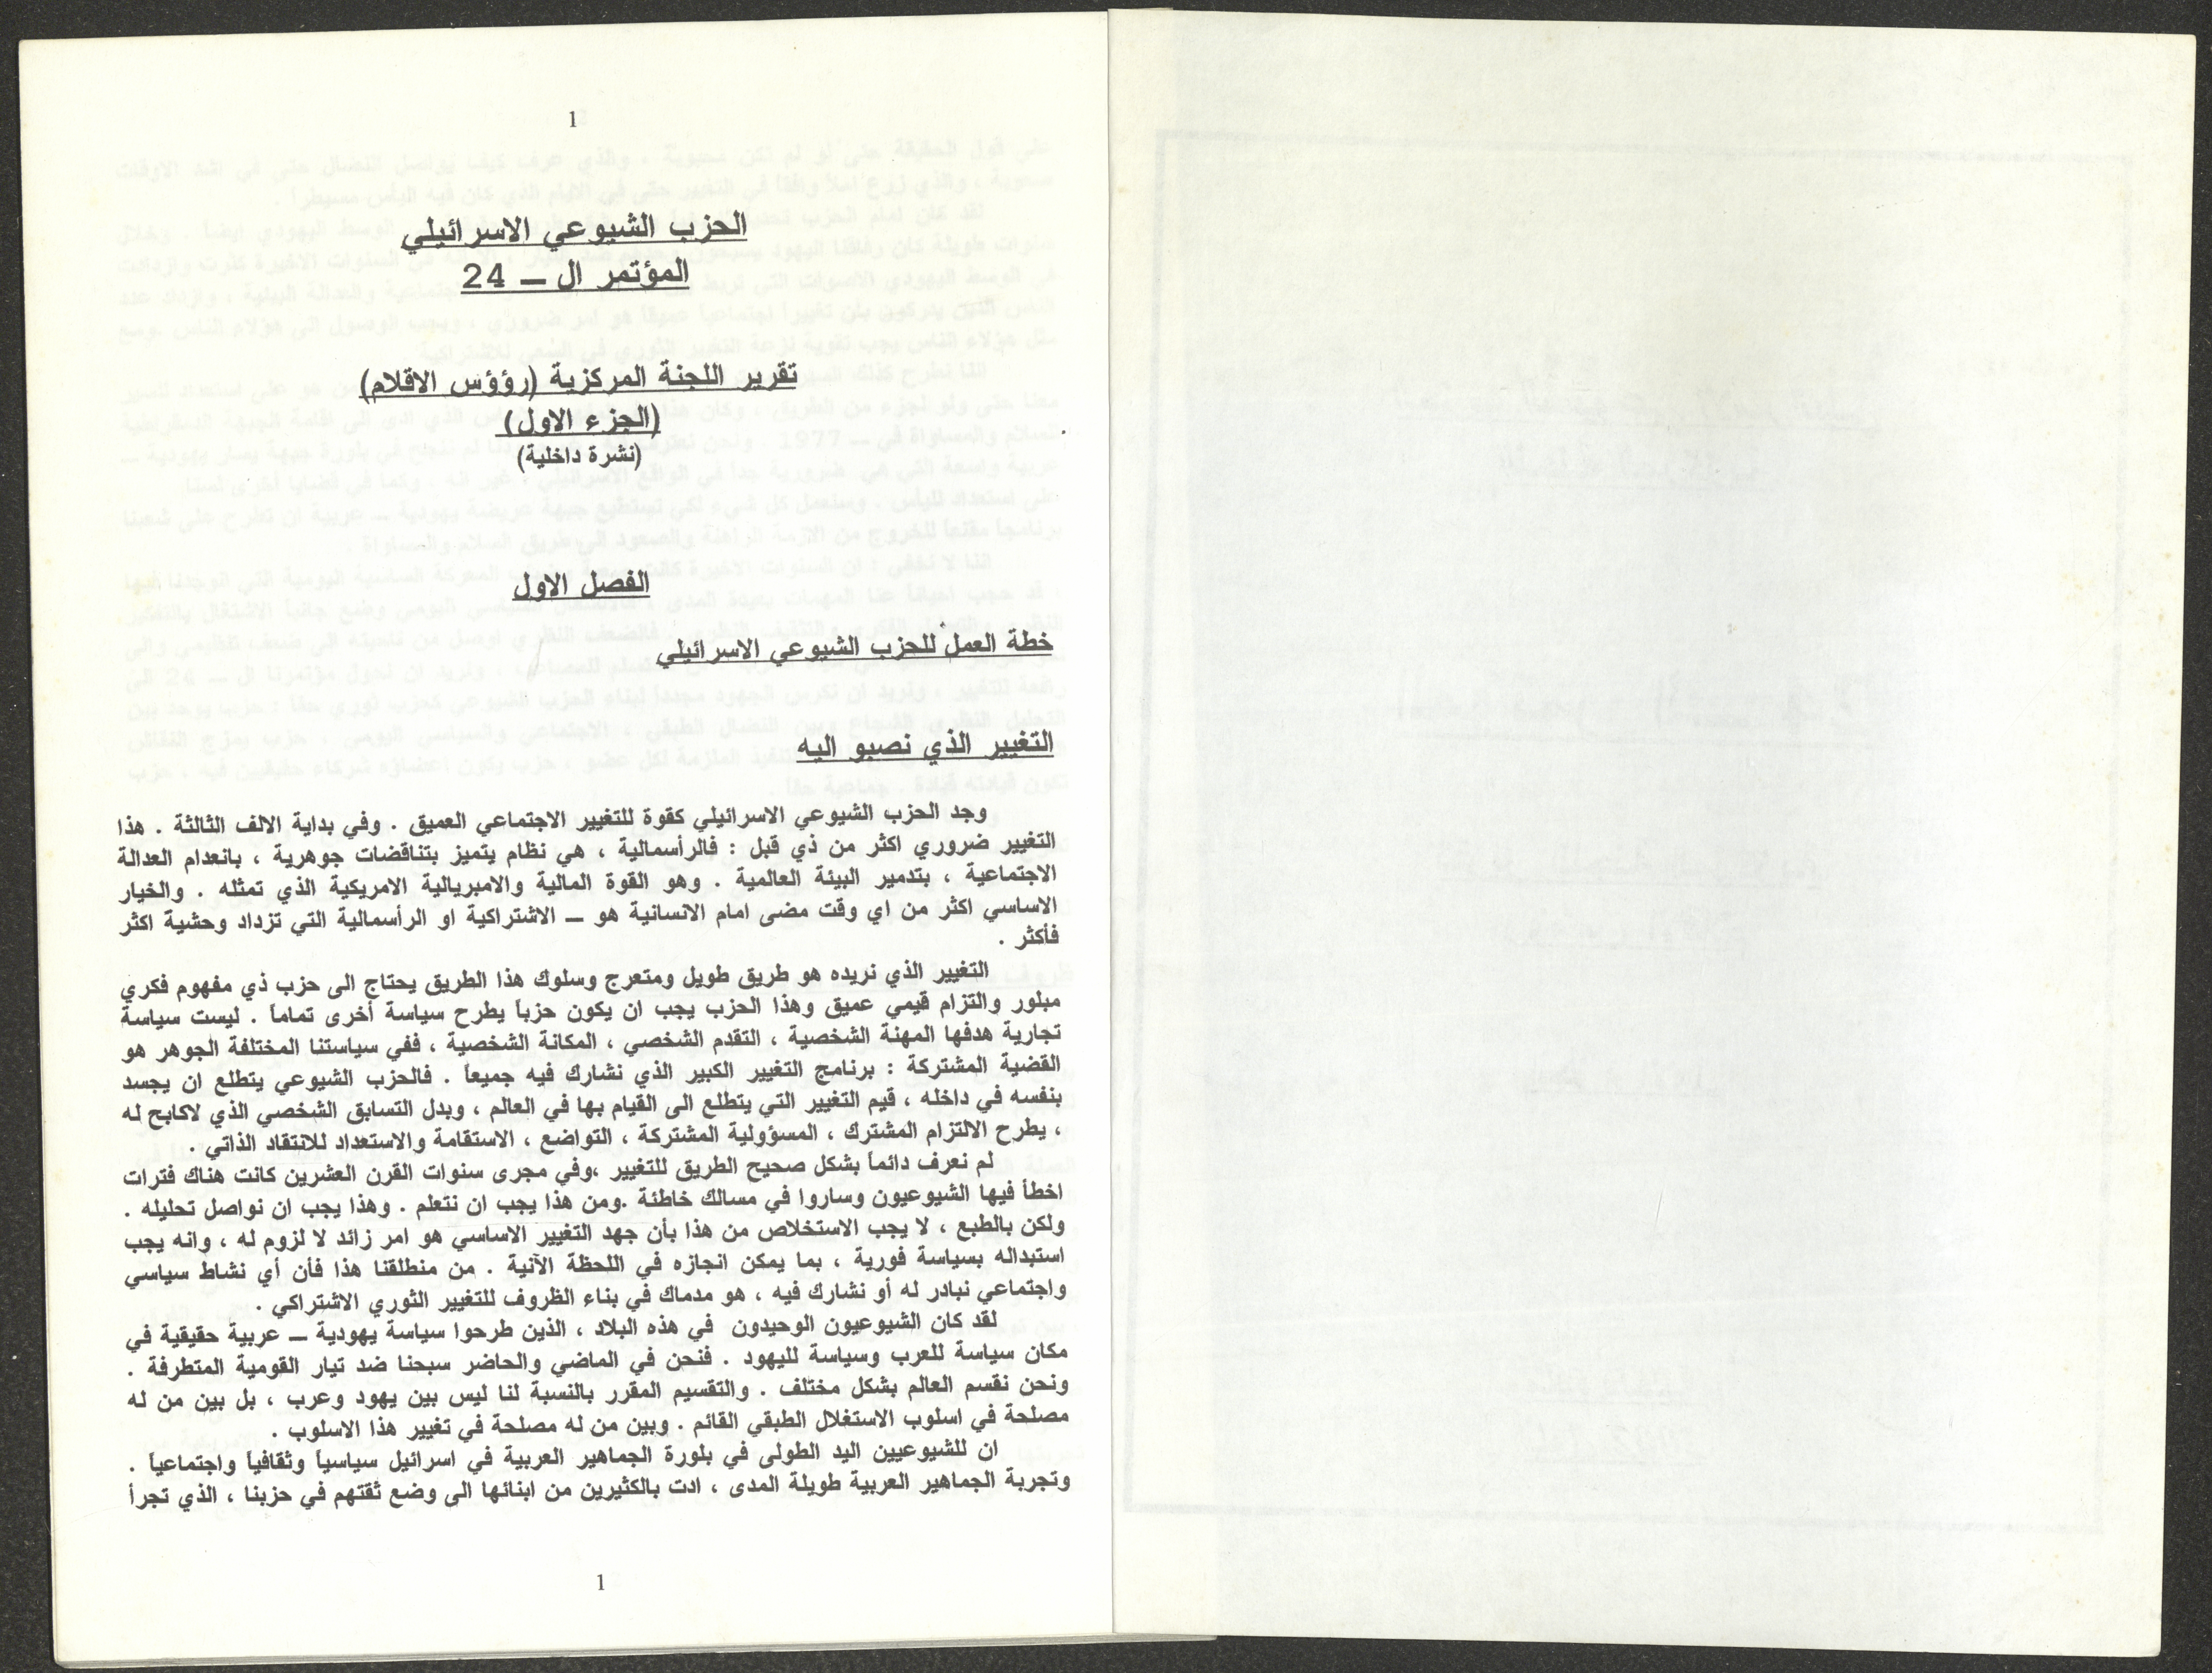 1
الحزب الشيوعي الاسرائيلي
المؤتمر ال ـ 24
تقرير اللجنة المركزية (رؤوس الاقلام)
(الجزء الاول)
(نشرة داخلية)
الفصل الاول
خطة العمل للحزب الشيوعي الاسرائيلي
التغيير الذي نصبو اليه
وجد الحزب الشيوعي الاسرائيلي كقوة للتغيير الاجتماعي العميق . وفي بداية الالف الثالثة . هذا
التغيير ضروري اكثر من ذي قبل : فالرأسمالية ، هي نظام يتميز بتناقضات جوهرية ، بانعدام العدالة
الاجتماعية ، بتدمير البيئة العالمية . وهو القوة المالية والامبريالية الامريكية الذي تمثله . والخيار
الاساسي اكثر من اي وقت مضى امام الانسانية هو ـ الاشتراكية او الرأسمالية التي تزداد وحشية اكثر
فأكثر .
التغيير الذي نريده هو طريق طويل ومتعرج وسلوك هذا الطريق يحتاج الى حزب ذي مفهوم فكري
مبلور والتزام قيمي عميق وهذا الحزب يجب ان يكون حزباً يطرح سياسة أخرى تماماً . ليست سياسة
تجارية هدفها المهنة الشخصية ، التقدم الشخصي ، المكانة الشخصية ، ففي سياستنا المختلفة الجوهر هو
القضية المشتركة : برنامج التغيير الكبير الذي نشارك فيه جميعاً . فالحزب الشيوعي يتطلع ان يجسد
بنفسه في داخله ، قيم التغيير التي يتطلع الى القيام بها في العالم ، وبدل التسابق الشخصي الذي لاكابح له
، يطرح الالتزام المشترك ، المسؤولية المشتركة ، التواضع ، الاستقامة والاستعداد للانتقاد الذاتي .
لم نعرف دائماً بشكل صحيح الطريق للتغيير ،وفي مجرى سنوات القرن العشرين كانت هناك فترات
اخطأ فيها الشيوعيون وساروا في مسالك خاطئة .ومن هذا يجب ان نتعلم . وهذا يجب ان نواصل تحليله .
ولكن بالطبع ، لا يجب الاستخلاص من هذا بأن جهد التغيير الاساسي هو امر زائد لا لزوم له ، وانه يجب
استبداله بسياسة فورية ، بما يمكن انجازه في اللحظة الآنية . من منطلقنا هذا فأن أي نشاط سياسي
واجتماعي نبادر له أو نشارك فيه ، هو مدماك في بناء الظروف للتغيير الثوري الاشتراكي .
لقد كان الشيوعيون الوحيدون في هذه البلاد ، الذين طرحوا سياسة يهودية ـ عربية حقيقية في
مكان سياسة للعرب وسياسة لليهود . فنحن في الماضي والحاضر سبحنا ضد تيار القومية المتطرفة .
ونحن نقسم العالم بشكل مختلف . والتقسيم المقرر بالنسبة لنا ليس بين يهود وعرب ، بل بين من له
مصلحة في اسلوب الاستغلال الطبقي القائم . وبين من له مصلحة في تغيير هذا الاسلوب .
ان للشيوعيين اليد الطولى في بلورة الجماهير العربية في اسرائيل سياسياً وثقافياً واجتماعياً .
وتجربة الجماهير العربية طويلة المدى ، ادت بالكثيرين من ابنائها الى وضع ثقتهم في حزبنا ، الذي تجرأ
1